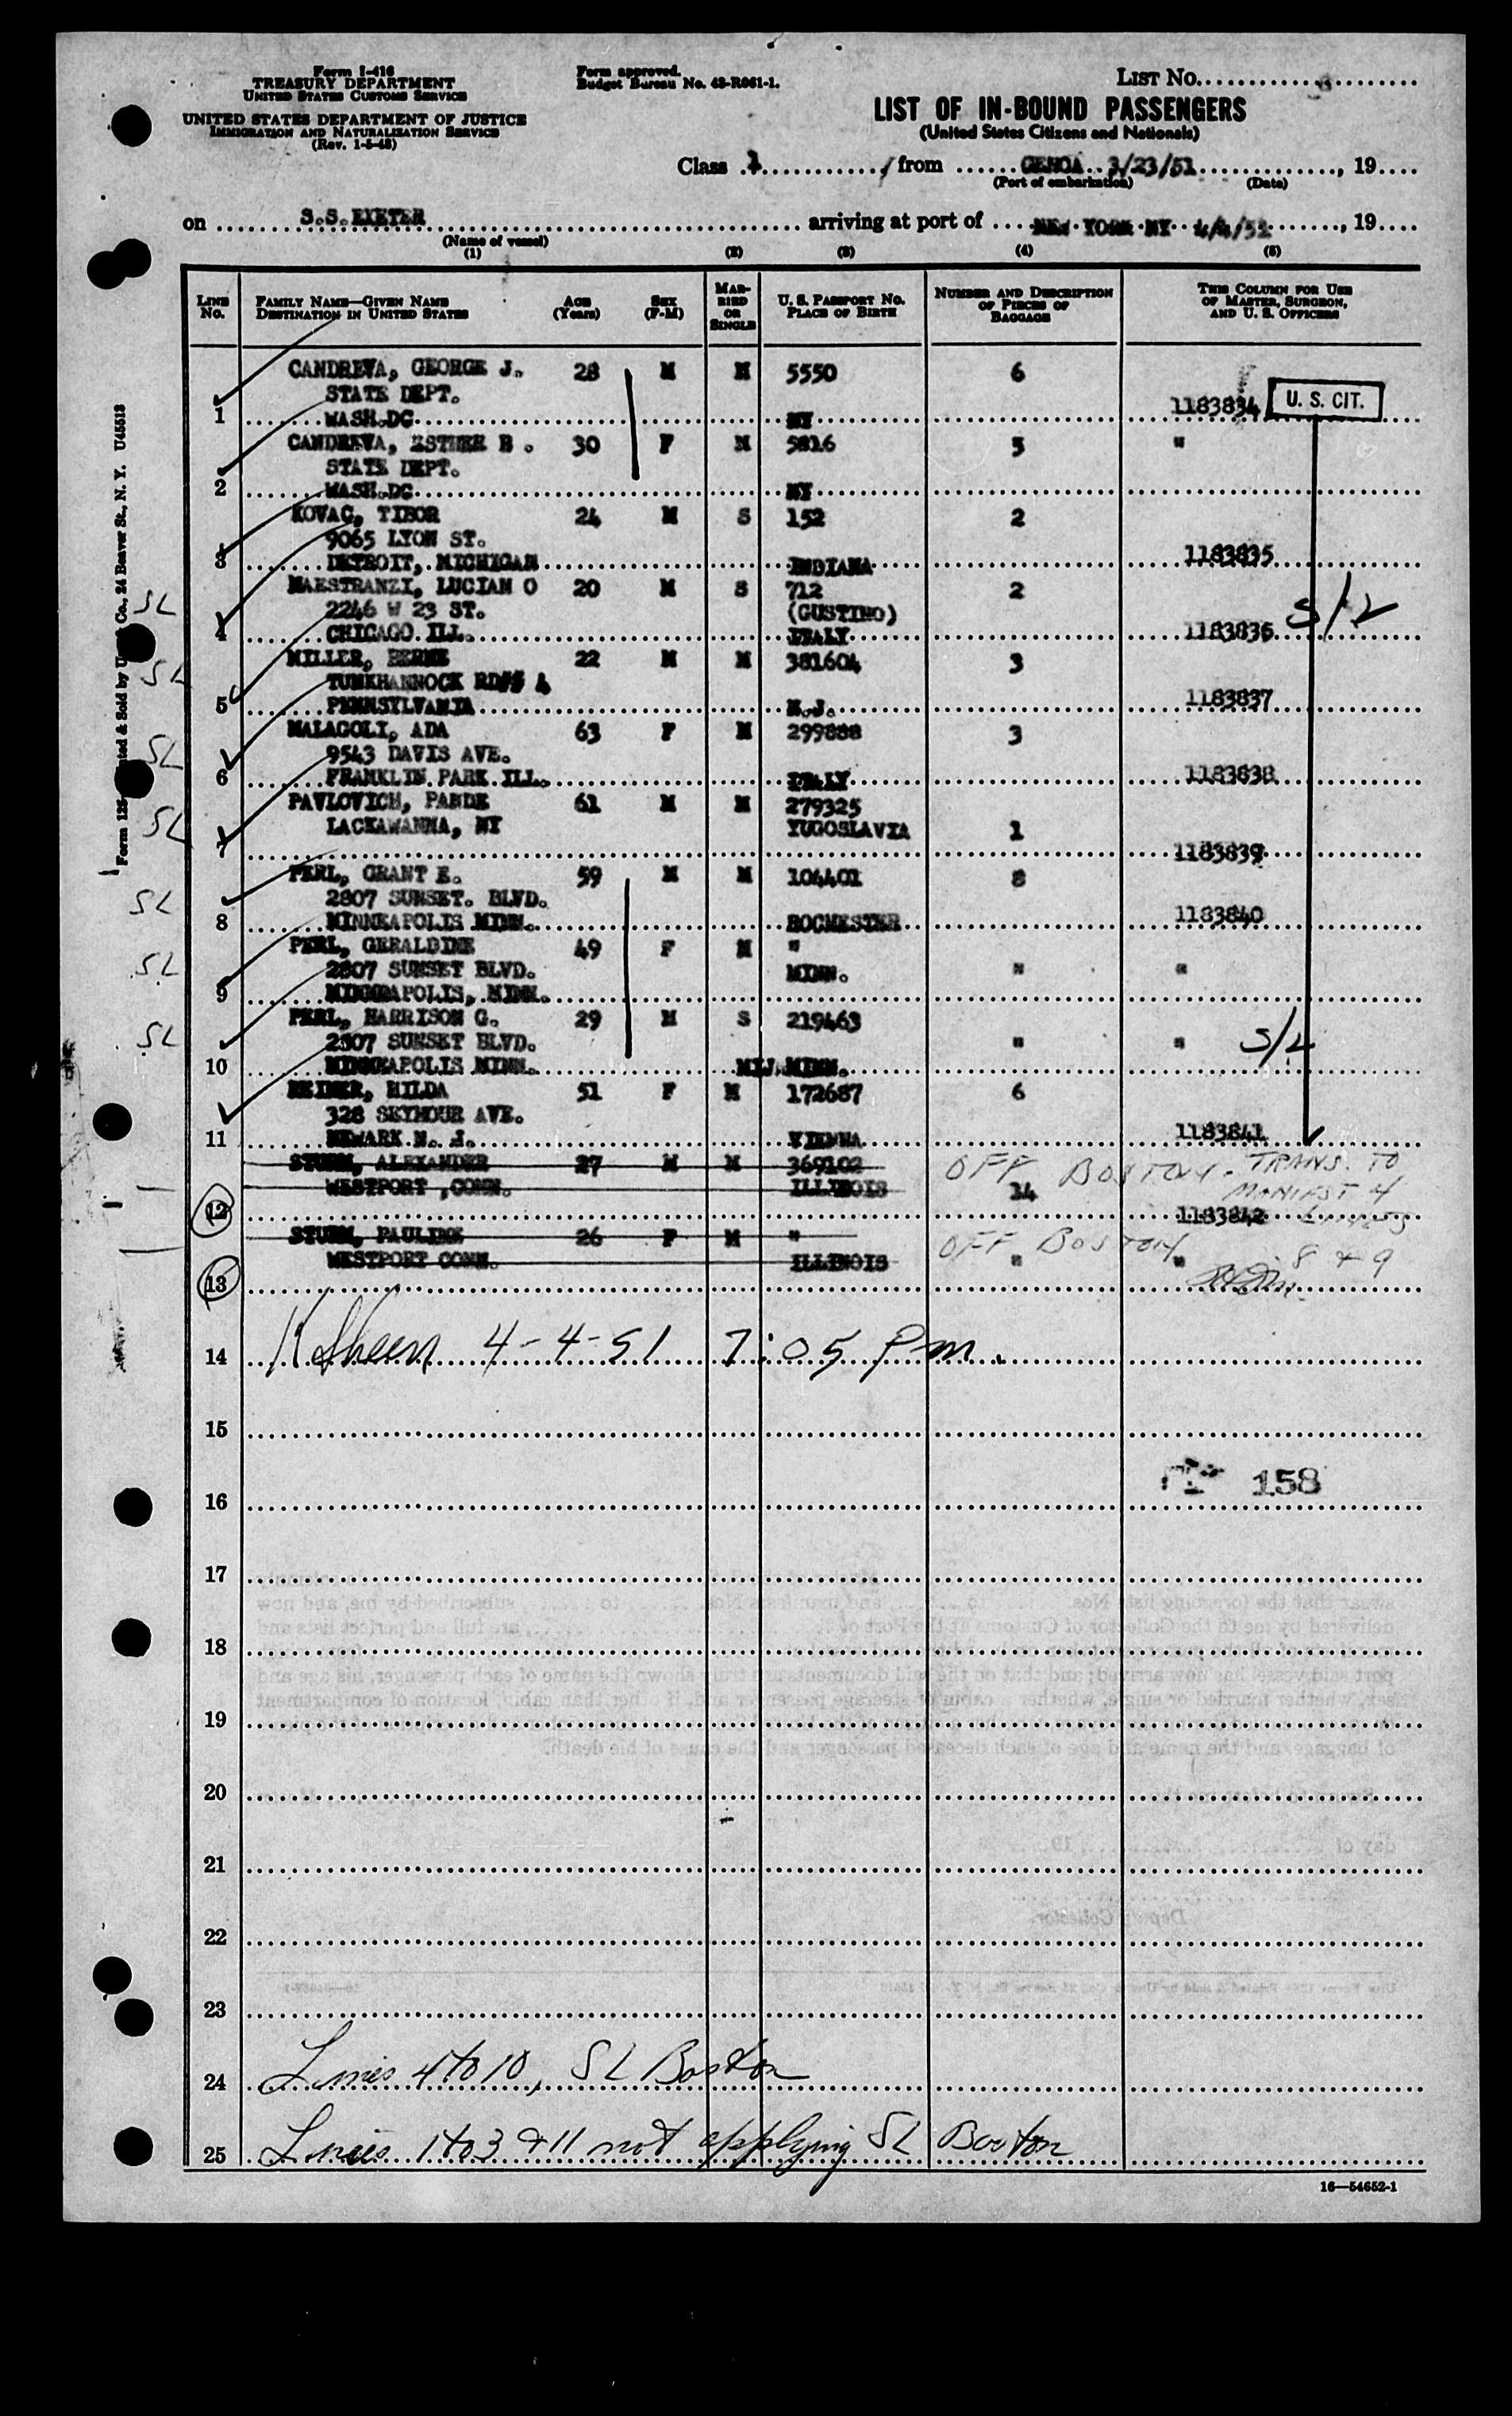 Form I-416
TREASURY DEPARTMENT
UNITED STATES CUSTOMS SERVICE
UNITED STATES DEPARTMENT OF JUSTICE
IMMIGRATION AND NATURALIZATION SERVICE
(Rev. 1-5-48)
Form approved.
Budget Bureau No. 43-R061-1.
LIST No.
LIST OF IN-BOUND PASSENGERS
(United States Citizens and Nationals)
Class 1, from GENOA 3/23/51, 19
(Port of embarkation) (Date)
on S.S. EXETER arriving at port of NEW YORK NY 4/4/51, 19
(Name of vessel)
(1) (2) (3) (4) (5)
LINE No. FAMILY NAME—GIVEN NAME DESTINATION IN UNITED STATES AGE (Years) SEX (F-M) MARRIED OR SINGLE U. S. PASSPORT No. PLACE OF BIRTH NUMBER AND DESCRIPTION OF PIECES OF BAGGAGE THIS COLUMN FOR USE OF MASTER, SURGEON, AND U. S. OFFICERS
CANDREVA, GEORGE J. 28 M M 5550 6
STATE DEPT. 1183834 U. S. CIT.
1 WASH.DC NY
CANDREVA, ESTHER B . 30 F M 5816 5 "
STATE DEPT.
2 WASH.DC NY
KOVAC, TIBOR 24 M S 152 2
9065 LYON ST.
3 DETROIT, MICHIGAN INDIANA 1183835
MAESTRANZI, LUCIAN O 20 M S 712 2
SL 2246 W 23 ST. (GUSTINO) S/L
4 CHICAGO ILL. ITALY 1183836
MILLER, BERNE 22 M M 381604 3
SL TUNKHANNOCK RD 4
5 PENNSYLVANIA N.J. 1183837
MALAGOLI, ADA 63 F M 299888 3
SL 9543 DAVIS AVE.
6 FRANKLIN PARK ILL. ITALY 1183838
PAVLOVICH, PANDE 61 M M 279325
SL LACKAWANNA, NY YUGOSLAVIA 1
7 1183839
PERL, GRANT E. 59 M M 104401 8
SL 2807 SUNSET. BLVD.
8 MINNEAPOLIS MINN. ROCHESTER 1183840
PERL, GERALDINE 49 F M "
SL 2807 SUNSET BLVD. MINN. " "
9 MINNEAPOLIS, MINN.
PERL, HARRISON G. 29 M S 219463
SL 2807 SUNSET BLVD. " " S/L
10 MINNEAPOLIS MINN. MINN.
REINER, HILDA 51 F M 172687 6
328 SEYMOUR AVE.
11 NEWARK N. J. VIENNA 1183841
STURM, ALEXANDER 27 M M 369102 OFF BOSTON - TRANS. TO
WESTPORT ,CONN. ILLINOIS 14 MANIFST 4
12 1183842
STURM, PAULINE 26 F M " OFF BOSTON
WESTPORT CONN. ILLINOIS " " 8 & 9
13
14 K Sheen 4-4-51 7:05 Pm.
15
16 158
17
18
19
20
21
22
23
24 Lines 4 to 10, SL Boston
25 Lines 1 to 3 & 11 not applying SL Boston
16—54652-1